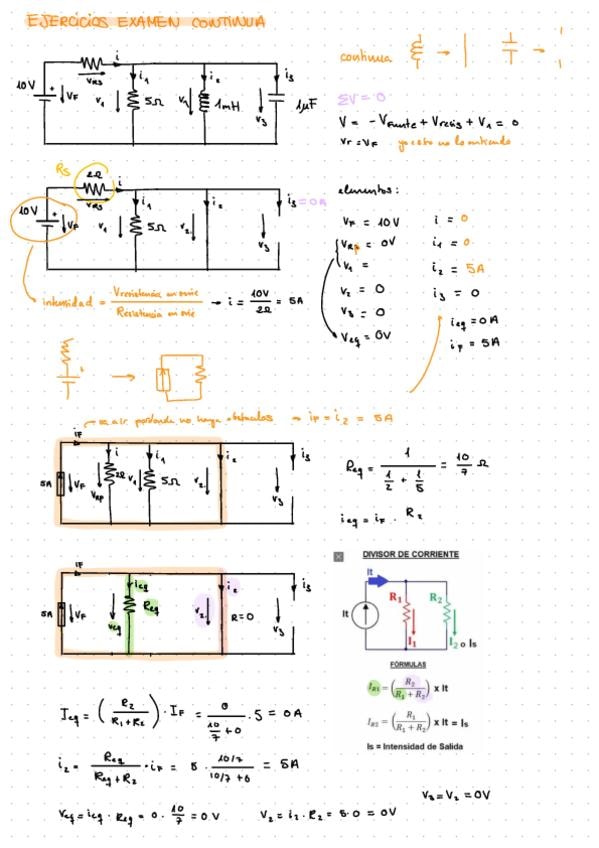 EJERCICIOS EXAMEN CONTINUA
continua
10V
+
VF
VRS
i
i1
V1
5Ω
i2
1mH
i3
V3
1μF
ΣV = 0
V = -Vfuente + Vresis + V1 = 0
Vr = VF
RS
2Ω
10V
+
VF
VRS
i
i1
V1
5Ω
i2
V2
i3 = 0A
V3
elementos:
VF = 10V
i = 0
VRP = 0V
i1 = 0
V1 =
i2 = 5A
V2 = 0
i3 = 0
V3 = 0
ieq = 0A
Veq = 0V
iF = 5A
intensidad = Vresistencia en serie / Resistencia en serie → i = 10V / 2Ω = 5A
→ iF = i2 = 5A
iF
5A
VF
i
2Ω
VRP
i1
V1
5Ω
i2
V2
i3
V3
Req = 1 / (1/2 + 1/5) = 10/7 Ω
ieq = iF · R2
iF
5A
VF
ieq
Req
Veq
i2
V2
R=0
i3
V3
DIVISOR DE CORRIENTE
It
R1
R2
It
I1
I2 o Is
FÓRMULAS
IR1 = (R2 / (R1 + R2)) x It
IR2 = (R1 / (R1 + R2)) x It = Is
Is = Intensidad de Salida
Ieq = (R2 / (R1 + R2)) · IF = 0 / (10/7 + 0) · 5 = 0A
i2 = Req / (Req + R2) · iF = 5 · 10/7 / (10/7 + 0) = 5A
V3 = V2 = 0V
Veq = ieq · Req = 0 · 10/7 = 0V
V2 = i2 · R2 = 5·0 = 0V